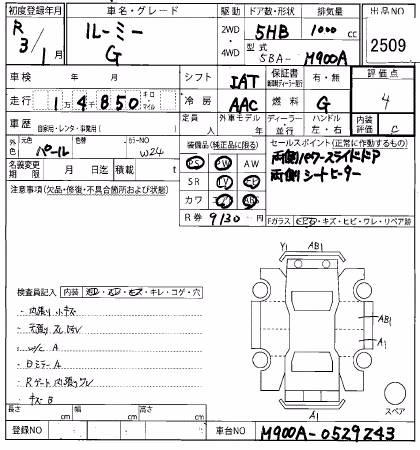 初度登録年月 車名・グレード 駆動 ドア数・形状 排気量 出品NO
R 3/1月 ルーミー G 2WD 4WD 5HB 1000 cc 2509
型式 5BA- M900A
車検 年 月 シフト IAT 保証書 有・無 評価点
走行 1万4850 キロ マイル 冷房 AAC 燃料 G 4
車歴 自家用・レンタ・事業用( ) 定員 人 外車モデル 年 ディーラー 並行 ハンドル 左・右 内装評価 C
外色 元色 パール 色替 カラーNO W24 装備品(純正品に限る) セールスポイント(正常に作動するもの)
PS PW AW 両側パワースライドドア
名義変更期限 月 日迄 積載 t SR TV 両側シートヒーター
注意事項(欠品・修復・不具合箇所および状態) カワ
R券 9130 円 Fガラス キズ・ヒビ・ワレ・リペア跡
Y1 AB1
検査員記入 内装 キレ・コゲ・穴
内張り小キズ AB1
W/C A A1
Bミラー A
Rゲート内張りワレ
キズB スペア
長さ cm 幅 cm 高さ cm A1
登録NO 車台NO M900A-0529243